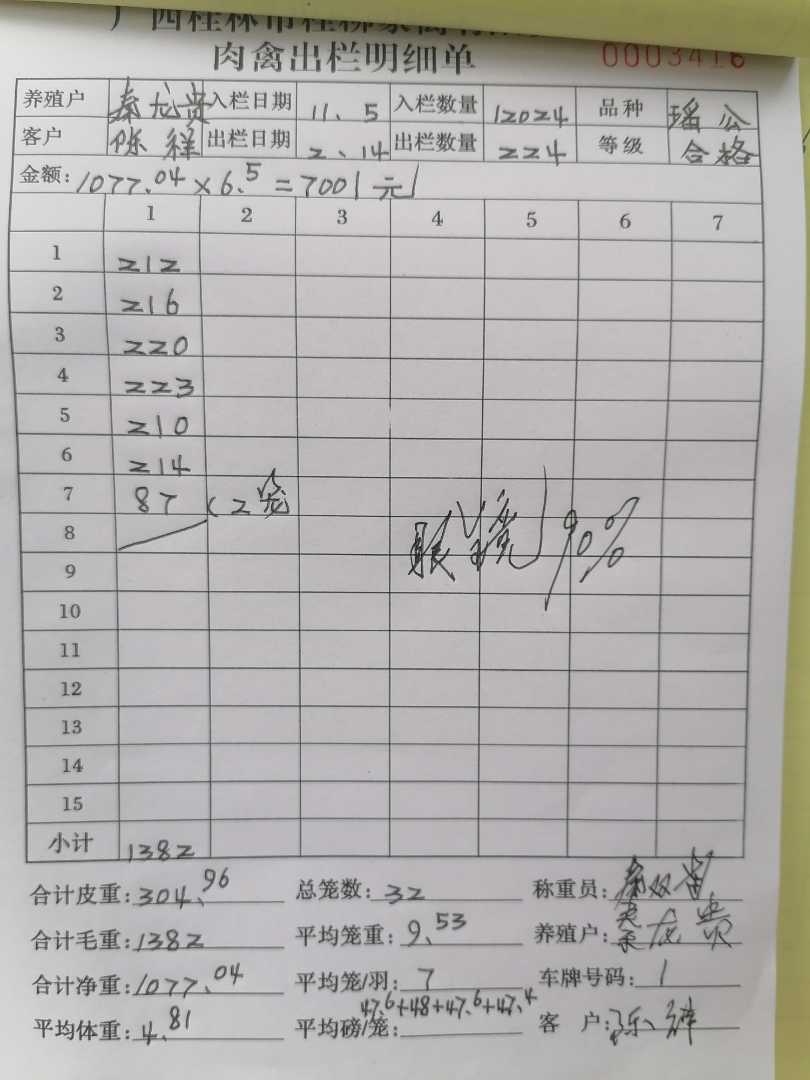 肉禽出栏明细单 0003416
养殖户 秦龙贵 入栏日期 11、5 入栏数量 12024 品种 瑶公
客户 陈祥 出栏日期 2、14 出栏数量 224 等级 合格
金额: 1077.04 × 6.5 = 7001元
1 2 3 4 5 6 7
1 212
2 216
3 220
4 223
5 210
6 214
7 87 (2笼
8
9
10
11
12
13
14
15
小计 1382
眼镜 90%
合计皮重: 304.96 总笼数: 32 称重员:
合计毛重: 1382 平均笼重: 9.53 养殖户: 秦龙贵
合计净重: 1077.04 平均笼/羽: 7 车牌号码: 1
平均体重: 4.81 平均磅/笼: 47.6+48+47.6+47.4 客 户: 陈祥